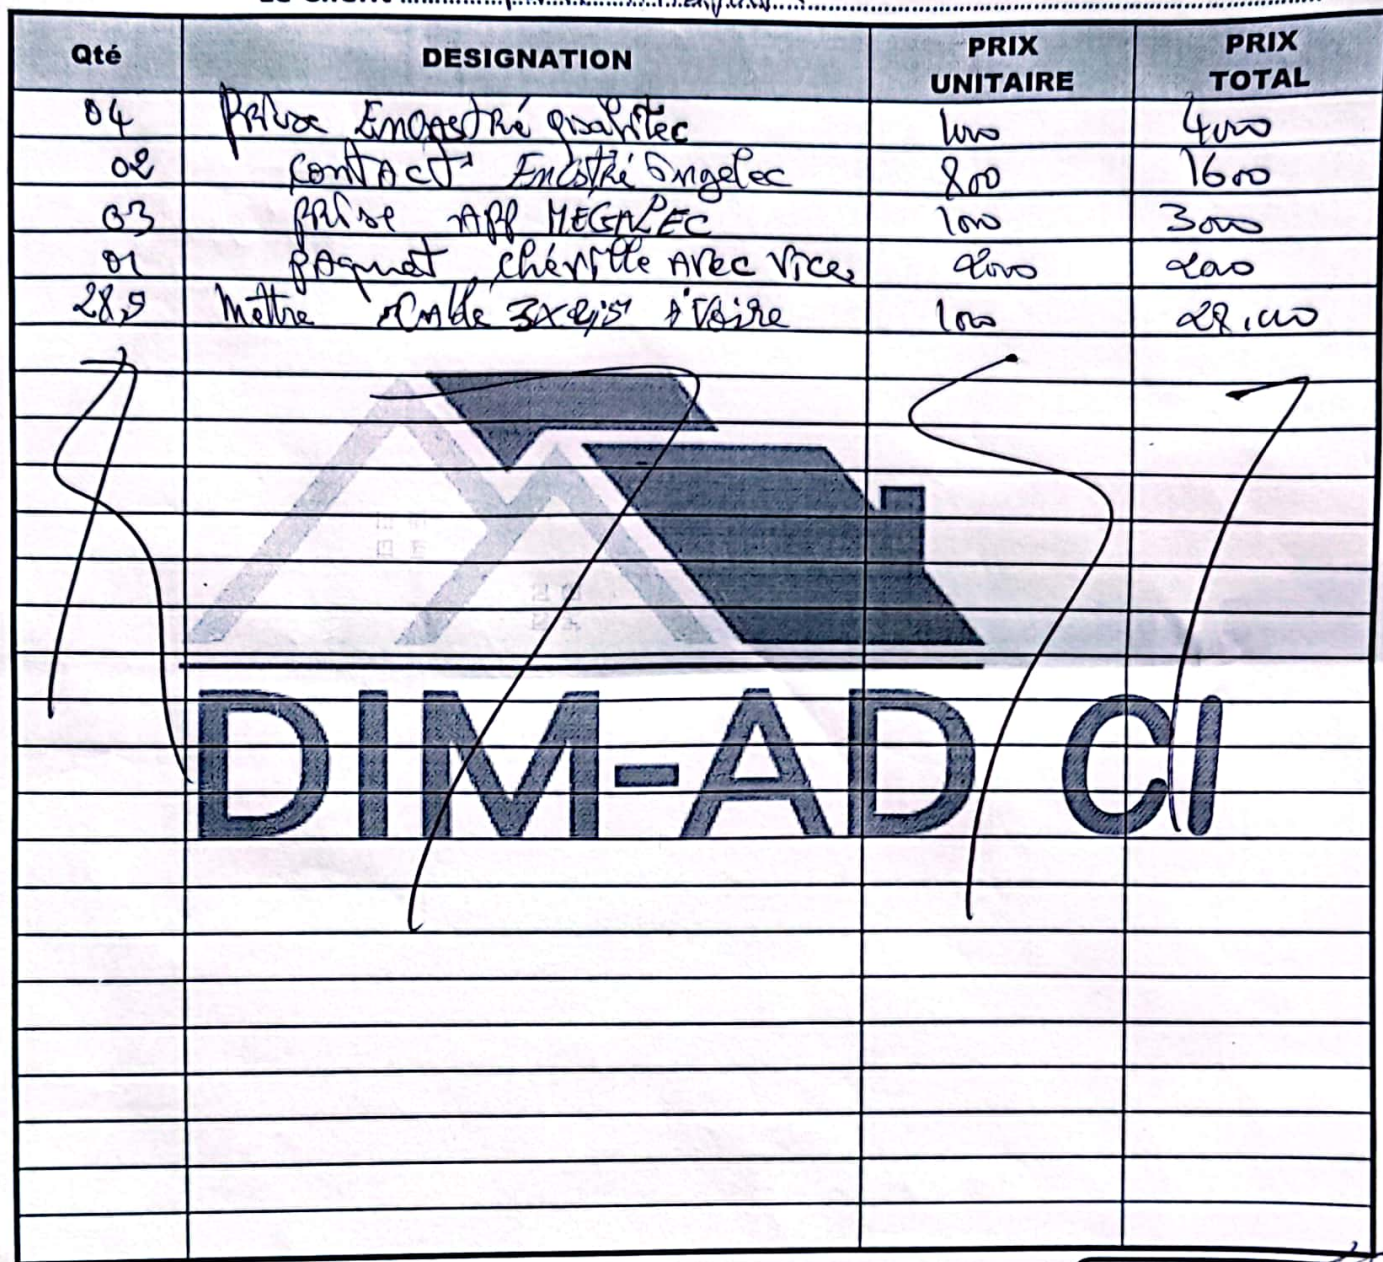 Qté DESIGNATION PRIX UNITAIRE PRIX TOTAL
04 Prise Encastré 1000 4000
02 contact Encstré Ingelec 800 1600
03 prise App MEGALEC 1000 3000
01 paquet cheville Avec vice 2000 2000
28,5 Mettre Cable 3x2,5 ivoire 1000 28.000
DIM-AD CI